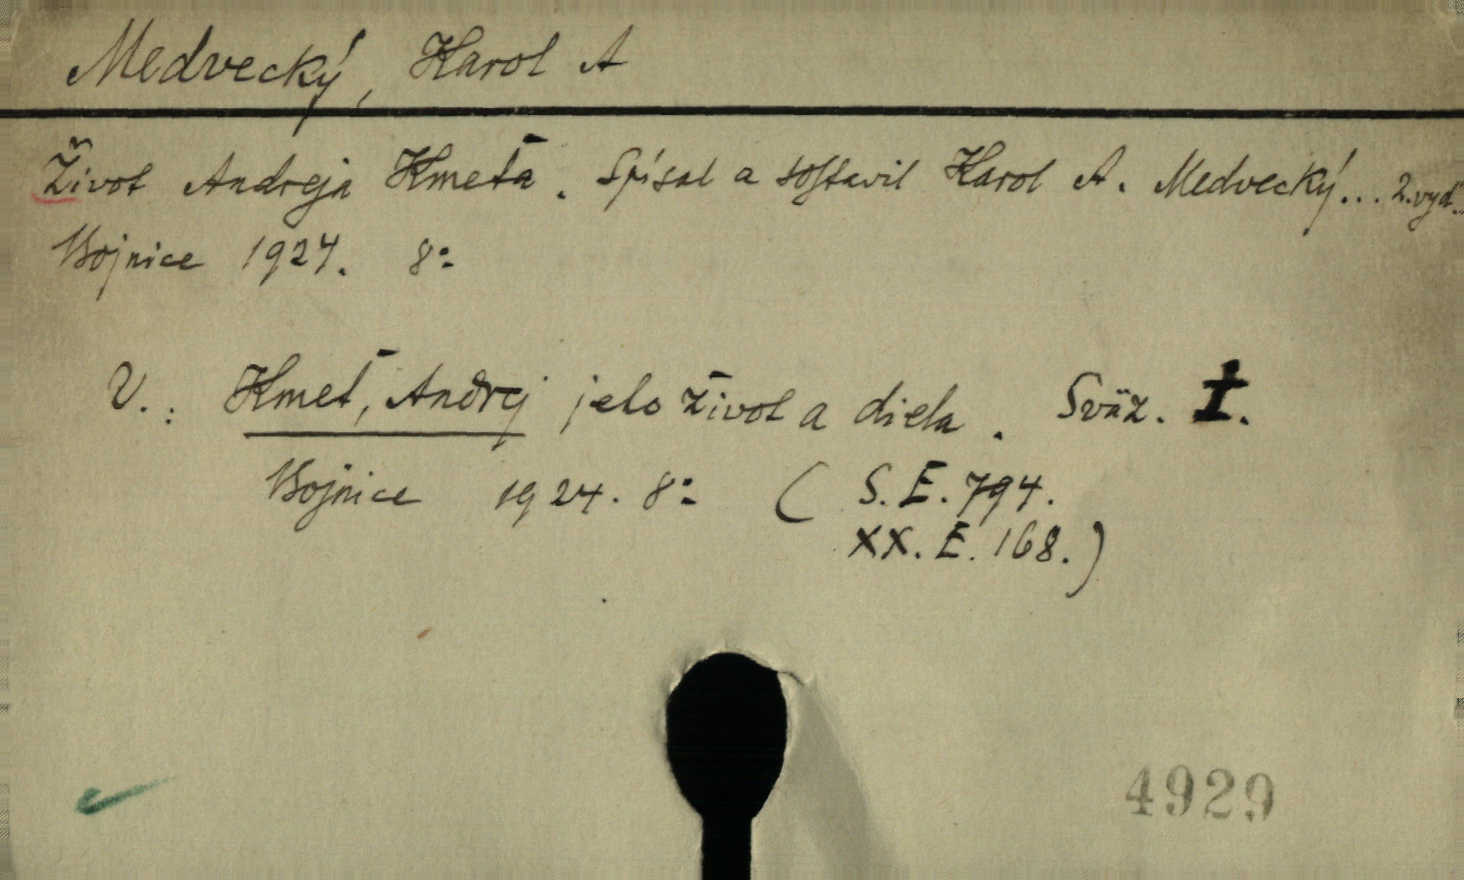 Medvecký, Karol A
Život Andreja Kmeťa. Spísal a sostavil Karol A. Medvecký... 2. vyd..
Bojnice 1924. 8°
V.: Kmeť, Andrej jeho život a diela. Sväz. I.
Bojnice 1924. 8°
(S. E. 794.
XX. E. 168.)
4929